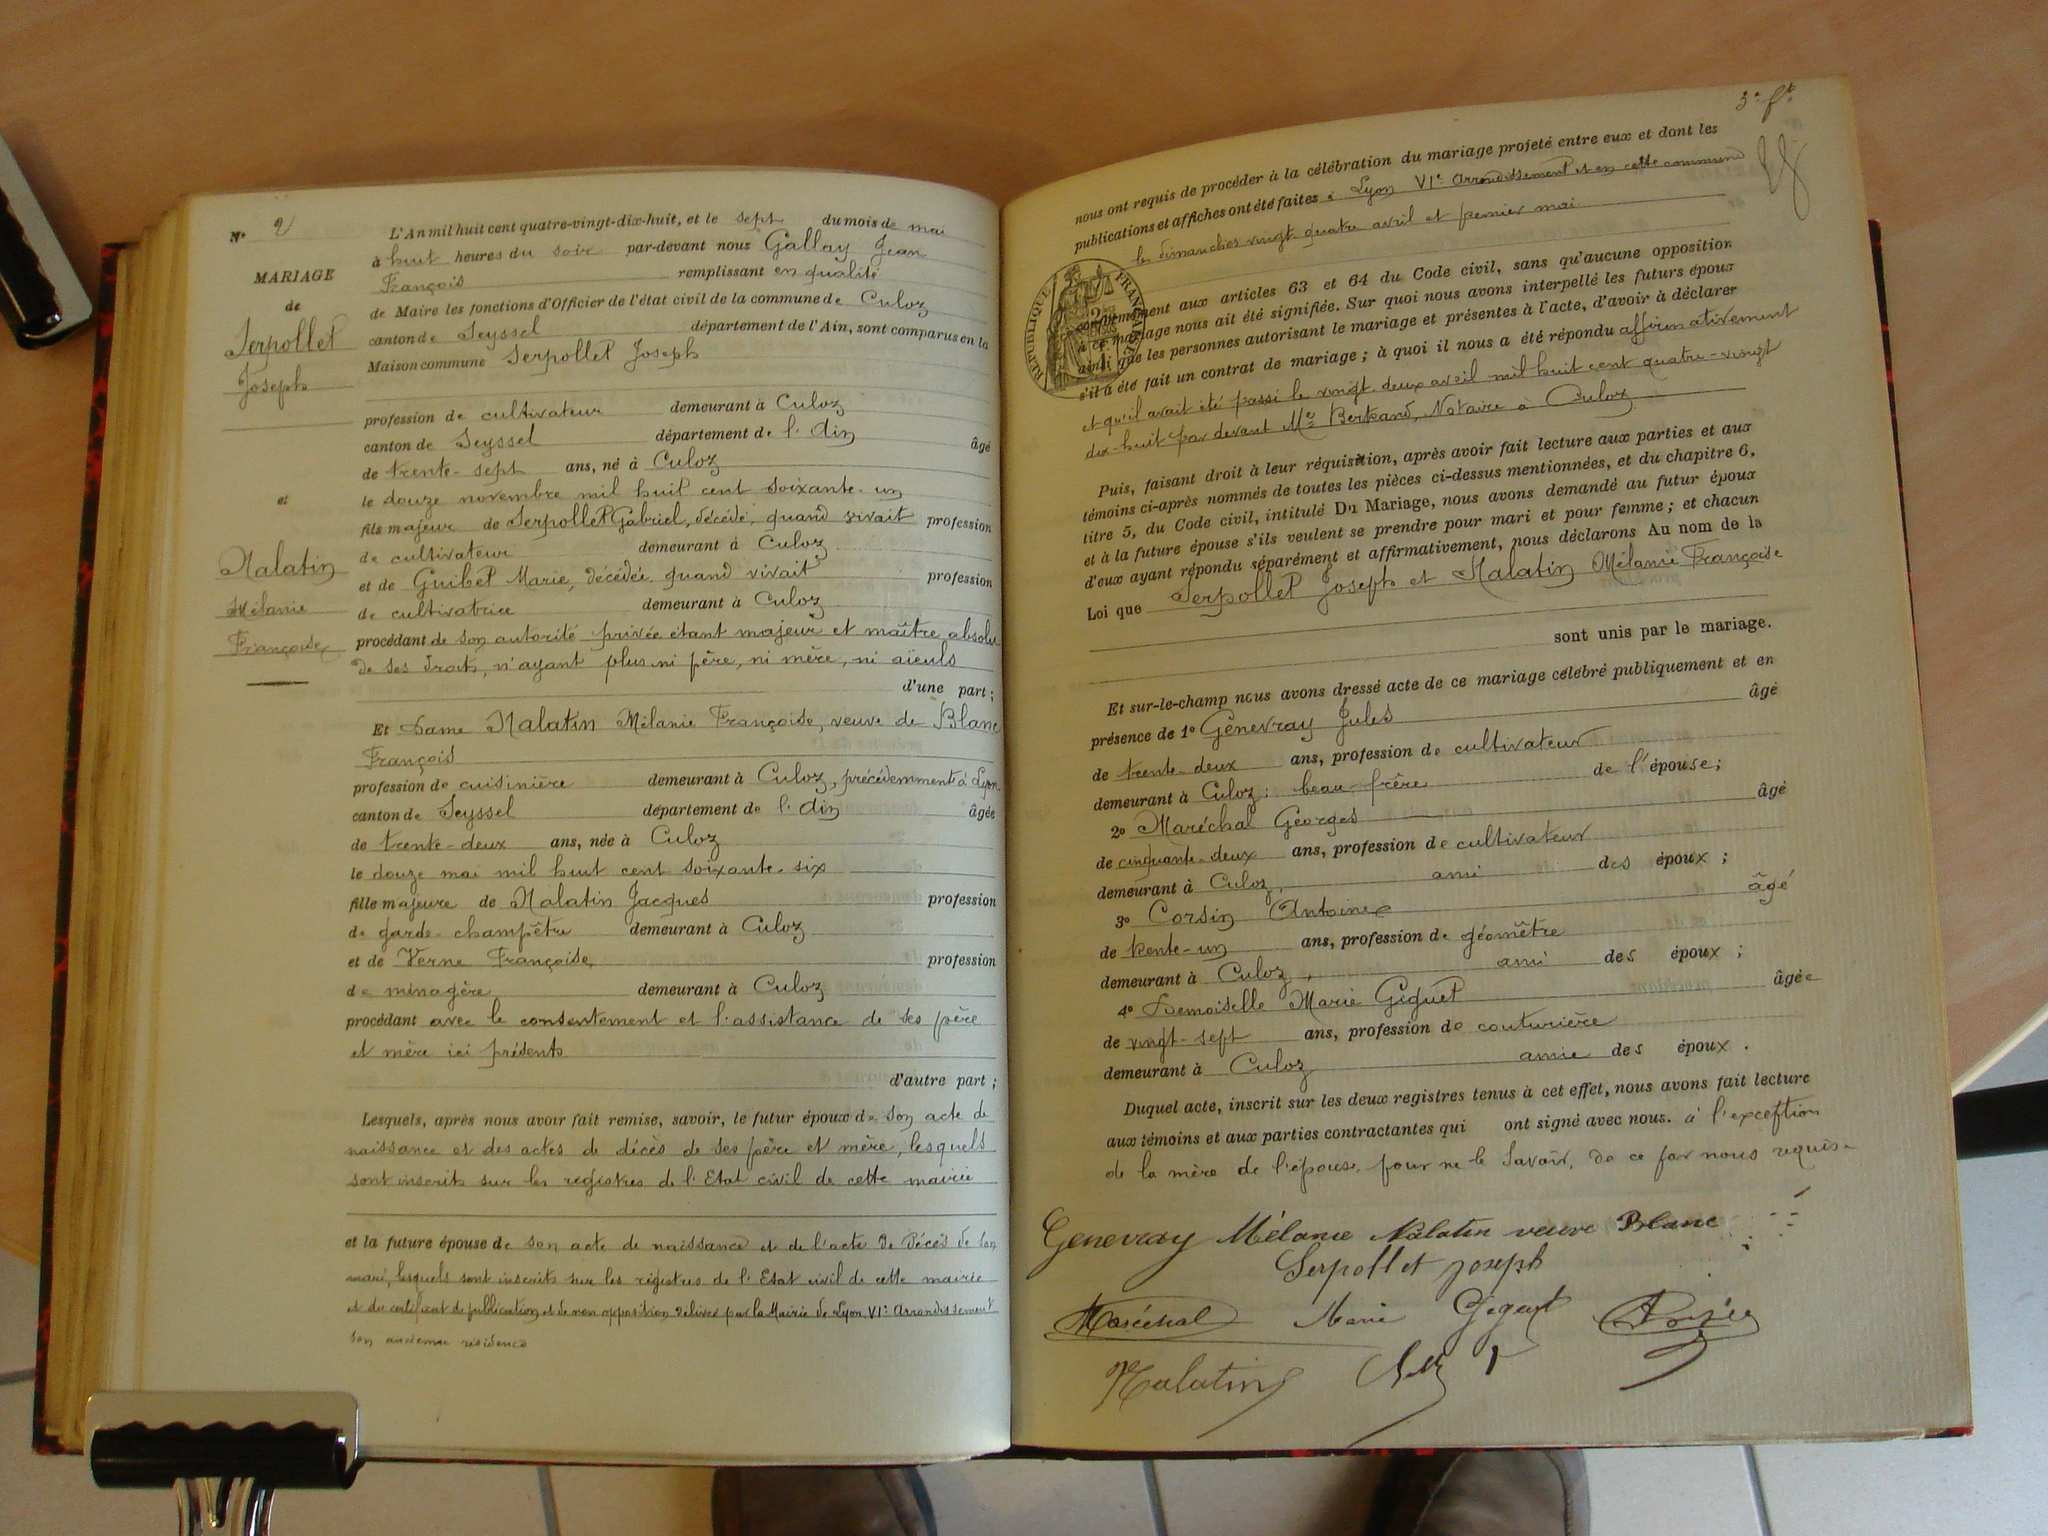 N° 2
MARIAGE
de
Serpollet
Joseph
et
Malatin
Mélanie
Françoise
L'An mil huit cent quatre-vingt-dix-huit, et le sept du mois de mai
à huit heures du soir par-devant nous Gallay Jean
François remplissant en qualité
de Maire les fonctions d'Officier de l'état civil de la commune de Culoz
canton de Seyssel département de l'Ain, sont comparus en la
Maison commune Serpollet Joseph
profession de cultivateur demeurant à Culoz
canton de Seyssel département de l'Ain âgé
de trente-sept ans, né à Culoz
le douze novembre mil huit cent soixante-un
fils majeur de Serpollet Gabriel, décédé, quand vivait profession
de cultivateur demeurant à Culoz
et de Guibet Marie, décédée quand vivait profession
de cultivatrice demeurant à Culoz
procédant de son autorité privée étant majeur et maître absolu
de ses droits, n'ayant plus ni père, ni mère, ni aïeuls
d'une part ;
Et Dame Malatin Mélanie Françoise, veuve de Blanc
François
profession de cuisinière demeurant à Culoz, précédemment à Lyon
canton de Seyssel département de l'Ain âgée
de trente-deux ans, née à Culoz
le douze mai mil huit cent soixante-six
fille majeure de Malatin Jacques profession
de garde-champêtre demeurant à Culoz
et de Verne Françoise profession
de ménagère demeurant à Culoz
procédant avec le consentement et l'assistance de ses père
et mère ici présents
d'autre part ;
Lesquels, après nous avoir fait remise, savoir, le futur époux de son acte de
naissance et des actes de décès de ses père et mère, lesquels
sont inscrits sur les registres de l'Etat civil de cette mairie
et la future épouse de son acte de naissance et de l'acte de décès de son
mari, lesquels sont inscrits sur les registres de l'Etat civil de cette mairie
et du certificat de publication et de non opposition délivré par la Mairie de Lyon VIe Arrondissement
son ancienne résidence
3e ft
nous ont requis de procéder à la célébration du mariage projeté entre eux et dont les
publications et affiches ont été faites à Lyon VIe Arrondissement et en cette commune
les dimanches vingt-quatre avril et premier mai
RÉPUBLIQUE FRANÇAISE
conformément aux articles 63 et 64 du Code civil, sans qu'aucune opposition
à ce mariage nous ait été signifiée. Sur quoi nous avons interpellé les futurs époux
ainsi que les personnes autorisant le mariage et présentes à l'acte, d'avoir à déclarer
s'il a été fait un contrat de mariage ; à quoi il nous a été répondu affirmativement
et qu'il avait été passé le vingt-deux avril mil huit cent quatre-vingt
dix-huit par devant Me Bertrand, Notaire à Culoz
Puis, faisant droit à leur réquisition, après avoir fait lecture aux parties et aux
témoins ci-après nommés de toutes les pièces ci-dessus mentionnées, et du chapitre 6,
titre 5, du Code civil, intitulé Du Mariage, nous avons demandé au futur époux
et à la future épouse s'ils veulent se prendre pour mari et pour femme ; et chacun
d'eux ayant répondu séparément et affirmativement, nous déclarons Au nom de la
Loi que Serpollet Joseph et Malatin Mélanie Françoise
sont unis par le mariage.
Et sur-le-champ nous avons dressé acte de ce mariage célébré publiquement et en
présence de 1° Genevray Jules âgé
de trente-deux ans, profession de cultivateur
demeurant à Culoz : beau-frère de l'épouse ;
2° Maréchal Georges âgé
de cinquante-deux ans, profession de cultivateur
demeurant à Culoz, ami des époux ;
3° Corsin Antoine âgé
de trente-un ans, profession de géomètre
demeurant à Culoz, ami des époux ;
4° Demoiselle Marie Gequet âgée
de vingt-sept ans, profession de couturière
demeurant à Culoz amie des époux.
Duquel acte, inscrit sur les deux registres tenus à cet effet, nous avons fait lecture
aux témoins et aux parties contractantes qui ont signé avec nous. à l'exception
de la mère de l'épouse, pour ne le savoir, de ce par nous requise
Genevray Mélanie Malatin veuve Blanc
Serpollet joseph
Maréchal Marie Gequet
Malatin